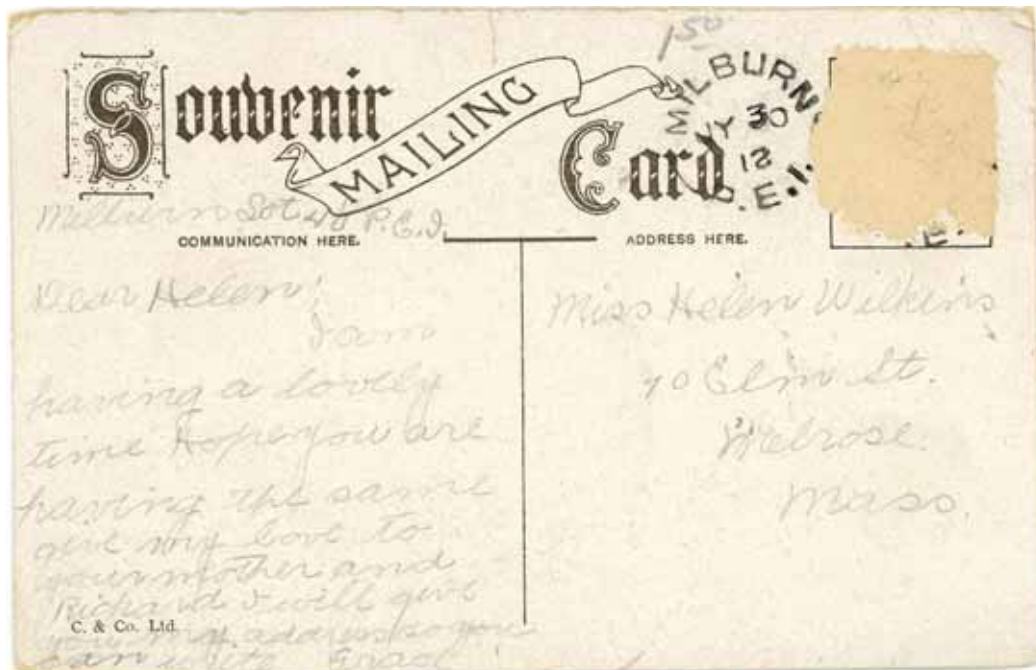 1 50
Souvenir
MAILING
Card
MILBURN
Y 30
12
.E.I.
.E.
Milburn Lot P.E.I.
COMMUNICATION HERE.
ADDRESS HERE.
Dear Helen;
I am
having a lovely
time Hope you are
having the same
give my love to
your mother and
Richard I will give
you my address so you
can write Grace
Miss Helen Wilkins
70 Elm St.
Melrose.
Mass.
C. & Co. Ltd.